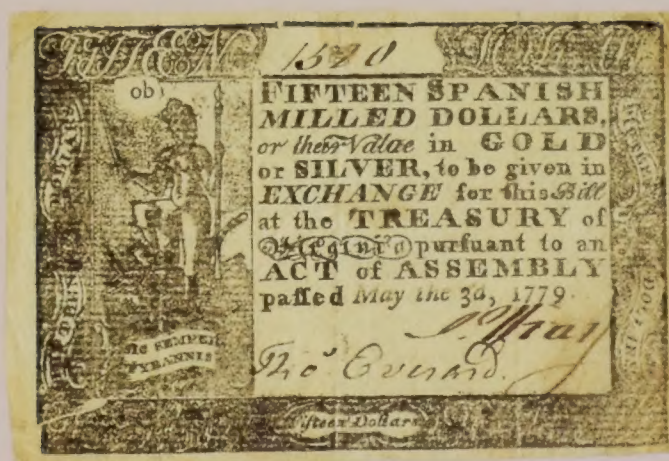 FIFTEEN
1510
ob
FIFTEEN SPANISH
MILLED DOLLARS,
or their Value in GOLD
or SILVER, to be given in
EXCHANGE for this Bill
at the TREASURY of
Virginia purſuant to an
ACT of ASSEMBLY
paſſed May the 3d, 1779.
J. Wray
Tho.ˢ Everard.
SIC SEMPER
TYRANNIS
Fifteen Dollars